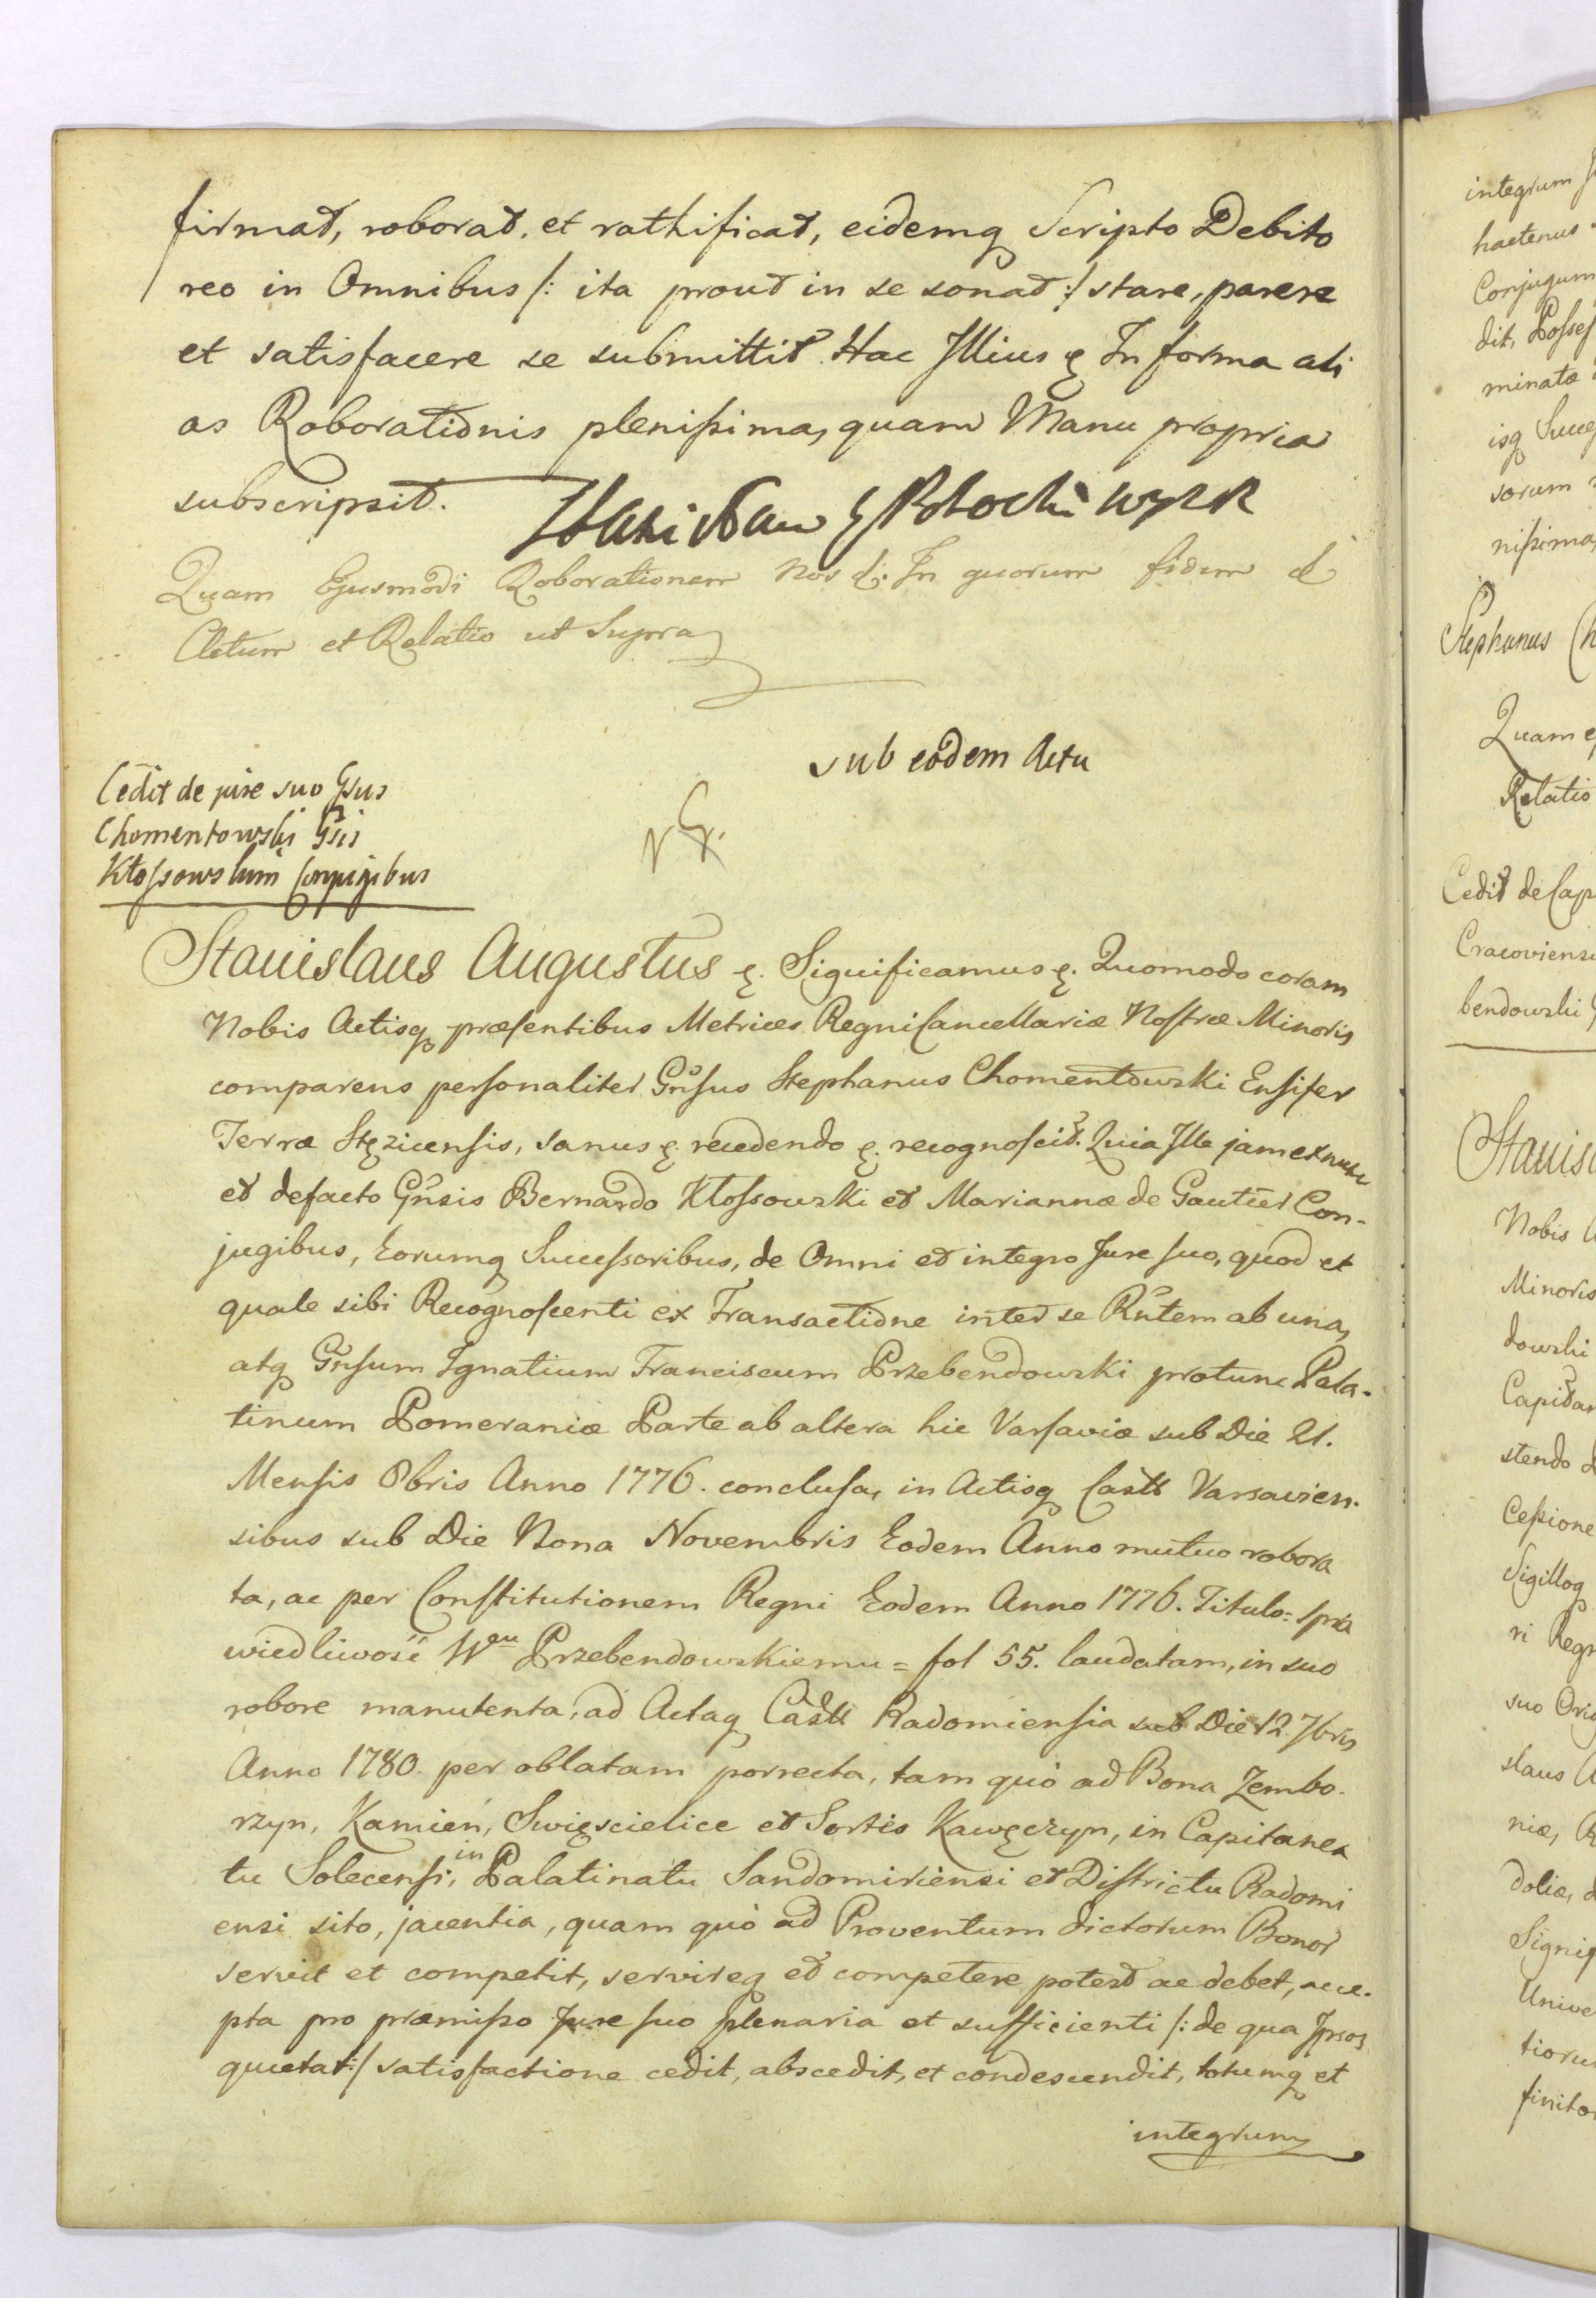 firmat, roborat, et rathificat, eidemq Scripto Debito
reo in Omnibus /: ita prout in se sonat :/ stare, parere
et satisfacere se submittit. Hac Illius ę In forma ali
as Roborationis plenissima, quam Manu propria
subscripsit.
Quam Ejusmodi Roborationem Nos ę. In quorum fidem ę
Actum et Relatio ut Supra
sub eodem Actu
Cedit de jure suo Gsus
Chomentowski Gsis
Kłossowskim Conjugibus
Stanislaus Augustus ę. Significamus ę. Quomodo coram
Nobis Actisq præsentibus Metrices Regni Cancellariæ Nostræ Minoris
comparens personaliter Gnsus Stephanus Chomentowski Ensifer
Terræ Stęzicensis, sanus ę. recedendo ę. recognoscit. Quia Ille jam ex nunc
et defacto Gnsis Bernardo Kłossowski et Mariannæ de Gautier Con-
jugibus, Eorumq Successoribus, de Omni et integro Jure suo, quod et
quale sibi Recognoscenti ex Transactione inter se Rntem ab una,
atq Gnsum Ignatium Franciscum Przebendowski protunc Pala-
tinum Pomeraniæ Parte ab altera hic Varsaviæ sub Die 21.
Mensis 8bris Anno 1776. conclusa, in Actisq Castr Varsavien-
sibus sub Die Nona Novembris Eodem Anno mutuo robora
ta, ac per Constitutionem Regni Eodem Anno 1776. Titulo = Spra
wiedliwość Wmu Przebendowskiemu = fol 55. laudatam, in suo
robore manutenta, ad Actaq Castr Radomiensia sub Die 12. 7bris
Anno 1780. per oblatam porrecta, tam quò ad Bona Zembo-
rzyn, Kamień, Swięscielice et Sortes Kawęczyn, in Capitanea
tu Solecensi, in Palatinatu Sandomiriensi et Districtu Radomi
ensi sito, jacentia, quam quò ad Proventum dictorum Bonor
servit et competit, servireq et competere potest ac debet, acce-
pta pro præmisso Jure suo plenaria et sufficienti /: de qua Ipsos
quietat :/ satisfactione cedit, abscedit, et condescendit, totumq et
integrum